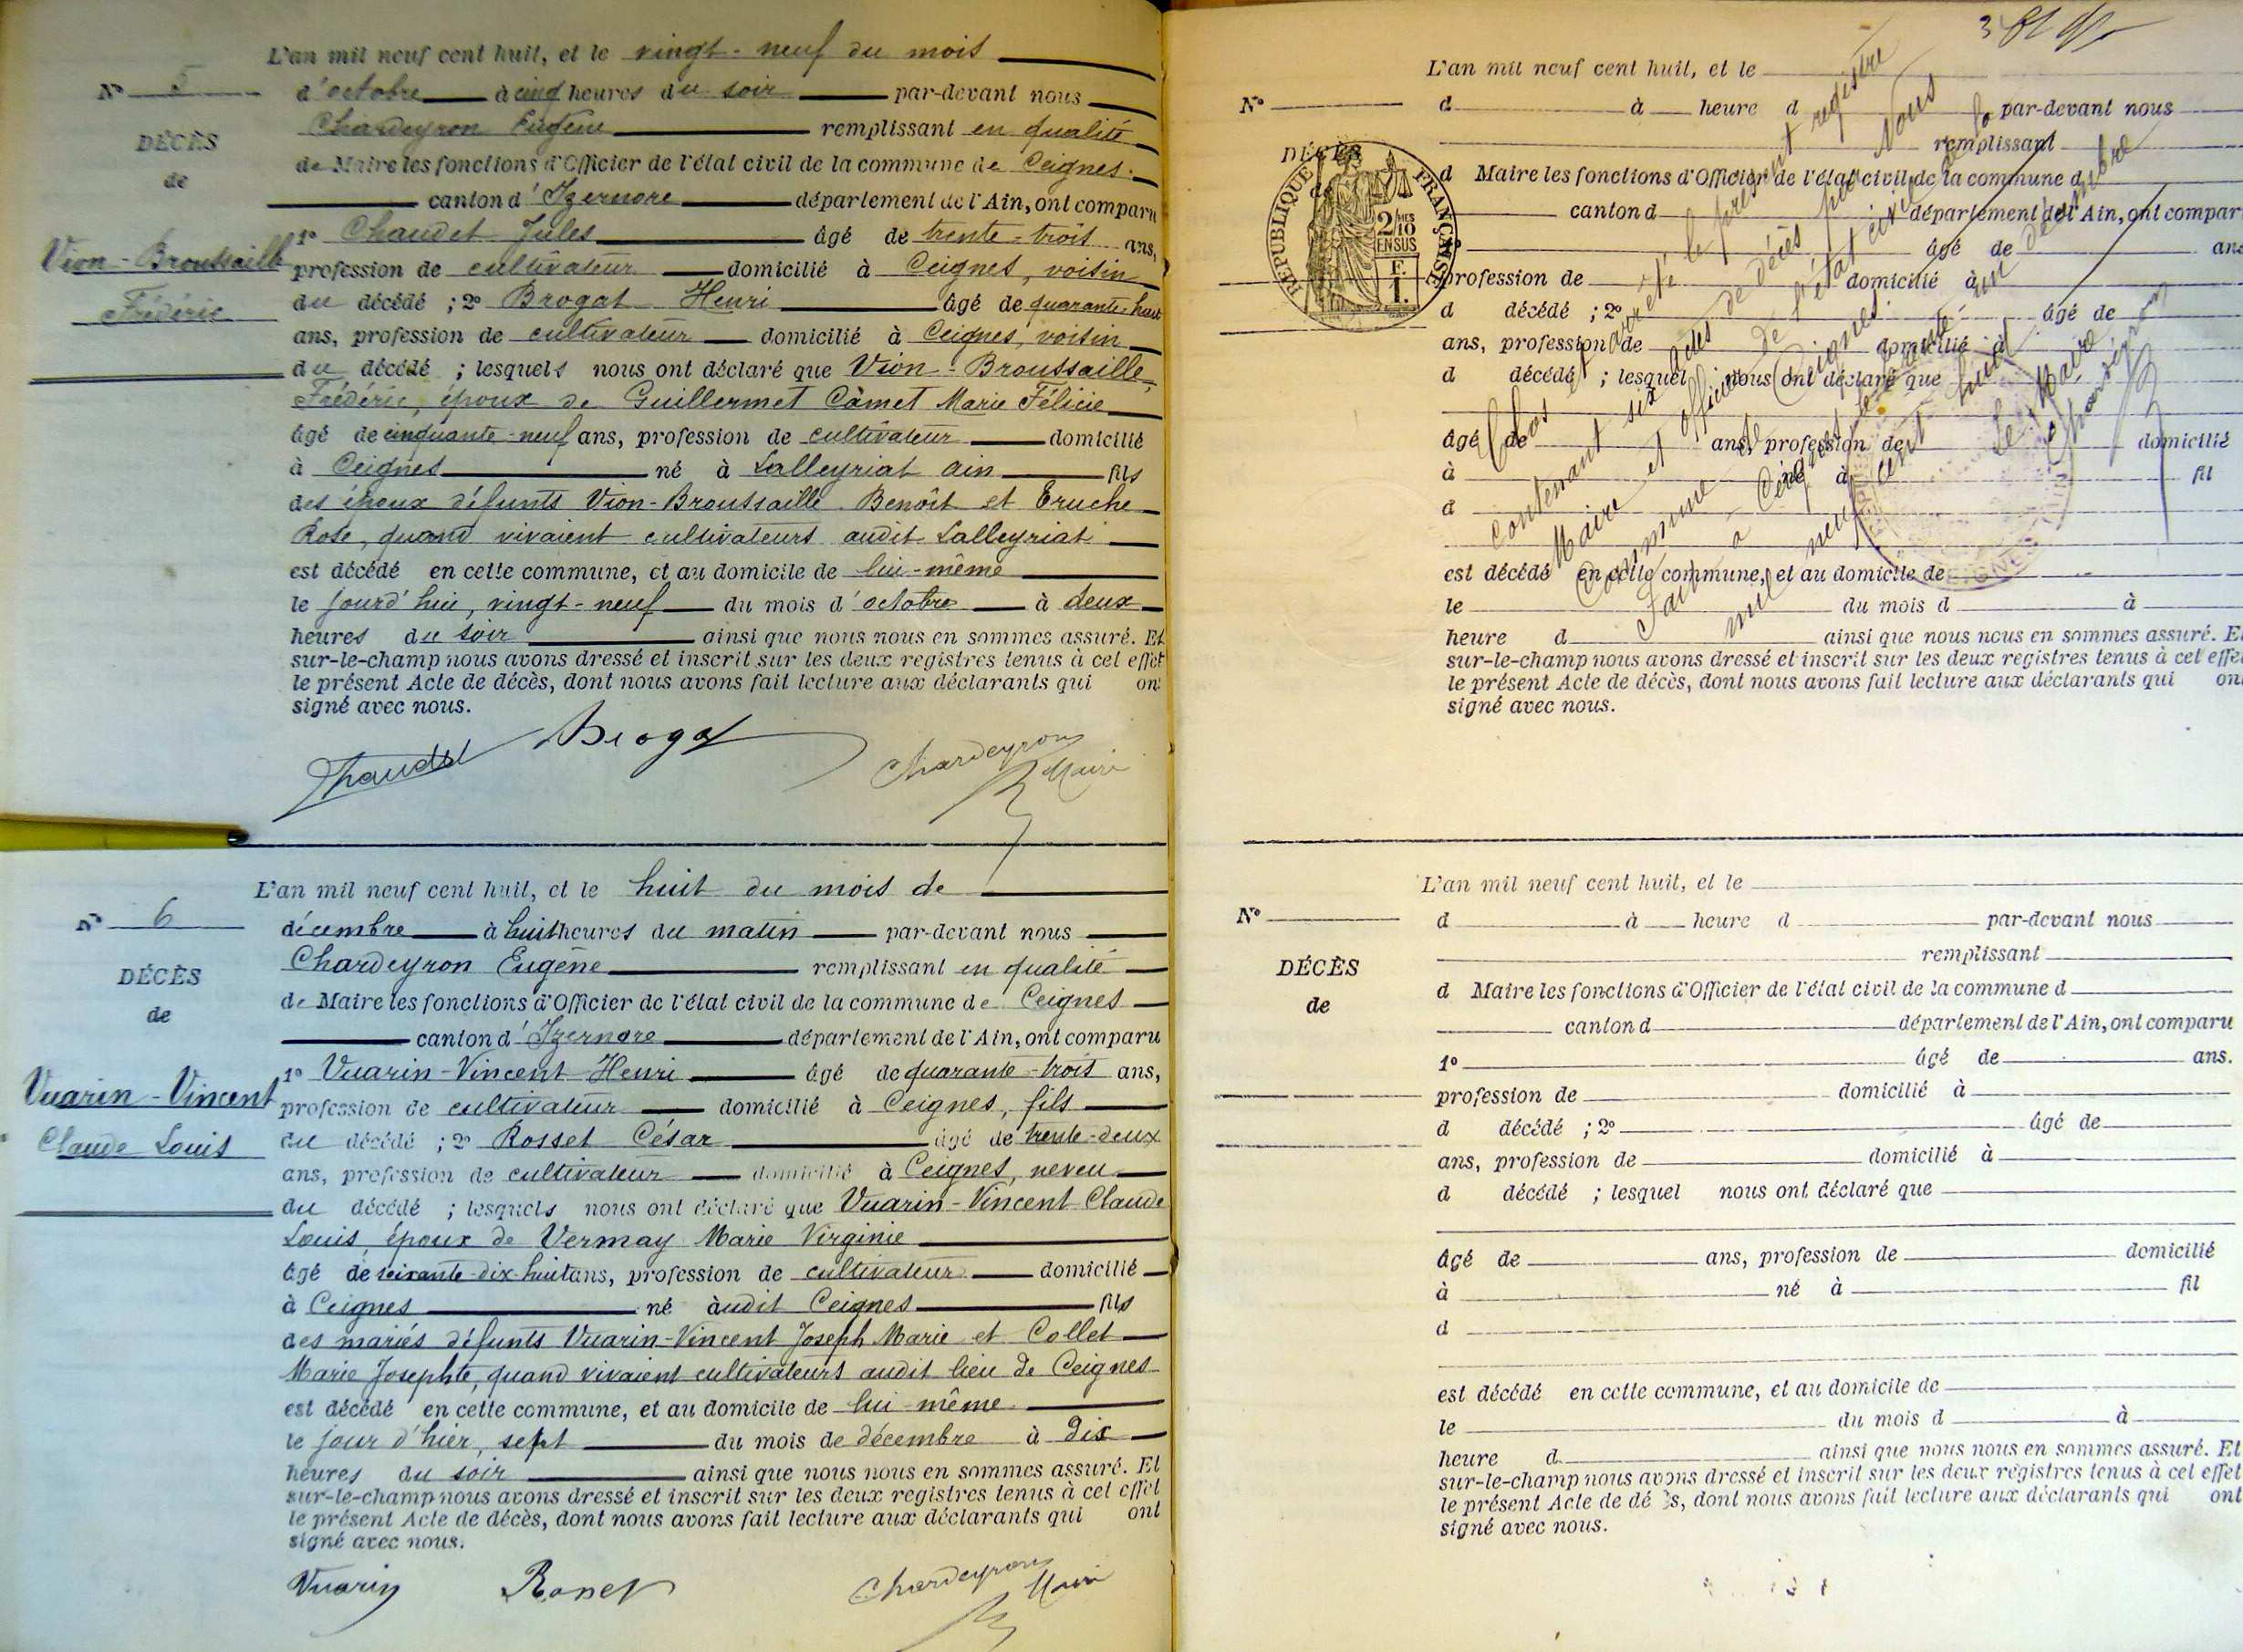 L'an mil neuf cent huit, et le vingt-neuf du mois
N° 5
d'octobre à cinq heures du soir par-devant nous
Chardeyron Eugène remplissant en qualité
DÉCÈS
de Maire les fonctions d'Officier de l'état civil de la commune de Ceignes
de
canton d'Izernore département de l'Ain, ont comparu
1° Chaudet Jules âgé de trente-trois ans,
Vion-Broussaille
profession de cultivateur domicilié à Ceignes, voisin
du décédé ; 2° Brogat Henri âgé de quarante-huit
Frédéric
ans, profession de cultivateur domicilié à Ceignes, voisin
du décédé ; lesquels nous ont déclaré que Vion-Broussaille,
Frédéric, époux de Guillermet Camet Marie Félicie
âgé de cinquante-neuf ans, profession de cultivateur domicilié
à Ceignes né à Lalleyriat Ain fils
des époux défunts Vion-Broussaille Benoît et Eruche
Rose, quand vivaient cultivateurs audit Lalleyriat
est décédé en cette commune, et au domicile de lui-même
le jourd'hui, vingt-neuf du mois d'octobre à deux
heures du soir ainsi que nous nous en sommes assuré. Et
sur-le-champ nous avons dressé et inscrit sur les deux registres tenus à cet effet
le présent Acte de décès, dont nous avons fait lecture aux déclarants qui ont
signé avec nous.
Chaudet Brogat Chardeyron
Maire
L'an mil neuf cent huit, et le huit du mois de
N° 6
décembre à huit heures du matin par-devant nous
Chardeyron Eugène remplissant en qualité
DÉCÈS
de Maire les fonctions d'Officier de l'état civil de la commune de Ceignes
de
canton d'Izernore département de l'Ain, ont comparu
1° Vuarin-Vincent Henri âgé de quarante-trois ans,
Vuarin-Vincent
profession de cultivateur domicilié à Ceignes, fils
Claude Louis
du décédé ; 2° Rosset César âgé de trente-deux
ans, profession de cultivateur domicilié à Ceignes, neveu
du décédé ; lesquels nous ont déclaré que Vuarin-Vincent Claude
Louis, époux de Vermay Marie Virginie
âgé de soixante-dix-huit ans, profession de cultivateur domicilié
à Ceignes né audit Ceignes fils
des mariés défunts Vuarin-Vincent Joseph Marie et Collet
Marie Josephte, quand vivaient cultivateurs audit lieu de Ceignes
est décédé en cette commune, et au domicile de lui-même
le jour d'hier, sept du mois de décembre à dix
heures du soir ainsi que nous nous en sommes assuré. Et
sur-le-champ nous avons dressé et inscrit sur les deux registres tenus à cet effet
le présent Acte de décès, dont nous avons fait lecture aux déclarants qui ont
signé avec nous.
Vuarin Rosset Chardeyron
Maire
L'an mil neuf cent huit, et le
N°
d à heure d par-devant nous
remplissant
DÉCÈS
d Maire les fonctions d'Officier de l'état civil de la commune d
canton d département de l'Ain, ont compar
RÉPUBLIQUE FRANÇAISE
2/10 MES
EN SUS
F.
1.
âgé de ans
profession de domicilié à
d décédé ; 2° âgé de
ans, profession de domicilié à
d décédé ; lesquel nous ont déclaré que
âgé de ans, profession de domicilié
à né à fil
d
est décédé en cette commune, et au domicile de
le du mois d à
heure d ainsi que nous nous en sommes assuré. Et
sur-le-champ nous avons dressé et inscrit sur les deux registres tenus à cet effet
le présent Acte de décès, dont nous avons fait lecture aux déclarants qui ont
signé avec nous.
Clos et arrêté le présent registre
contenant six actes de décès par Nous
Maire et officier de l'état civil de la
Commune de Ceignes
Fait à Ceignes le trente-un décembre
mil neuf cent huit
Le Maire
Chardeyron
L'an mil neuf cent huit, et le
N°
d à heure d par-devant nous
remplissant
DÉCÈS
d Maire les fonctions d'Officier de l'état civil de la commune d
de
canton d département de l'Ain, ont comparu
1° âgé de ans.
profession de domicilié à
d décédé ; 2° âgé de
ans, profession de domicilié à
d décédé ; lesquel nous ont déclaré que
âgé de ans, profession de domicilié
à né à fil
d
est décédé en cette commune, et au domicile de
le du mois d à
heure d ainsi que nous nous en sommes assuré. Et
sur-le-champ nous avons dressé et inscrit sur les deux registres tenus à cet effet
le présent Acte de dé s, dont nous avons fait lecture aux déclarants qui ont
signé avec nous.